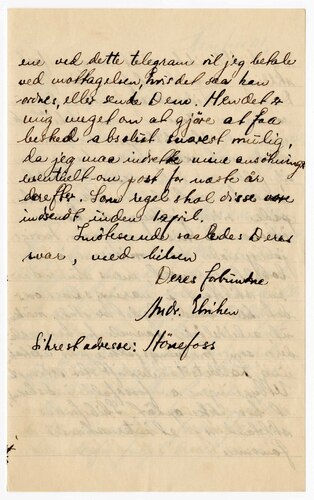 ene ved dette telegram vil jeg betale
ved mottagelsen, hvis det saa kan
ordnes, eller sende Dem. Men det er
mig meget om at gjöre at faa
besked absolut snarest mulig,
da jeg maa indrette mine ansökninger
eventuelt om post for næste år
derefter. Som regel skal disse være
indsendt inden 1 april.
Imöteseende saaledes Deres
svar, med hilsen
Deres forbundne
Andr.
Sikrest adresse: Hönefoss